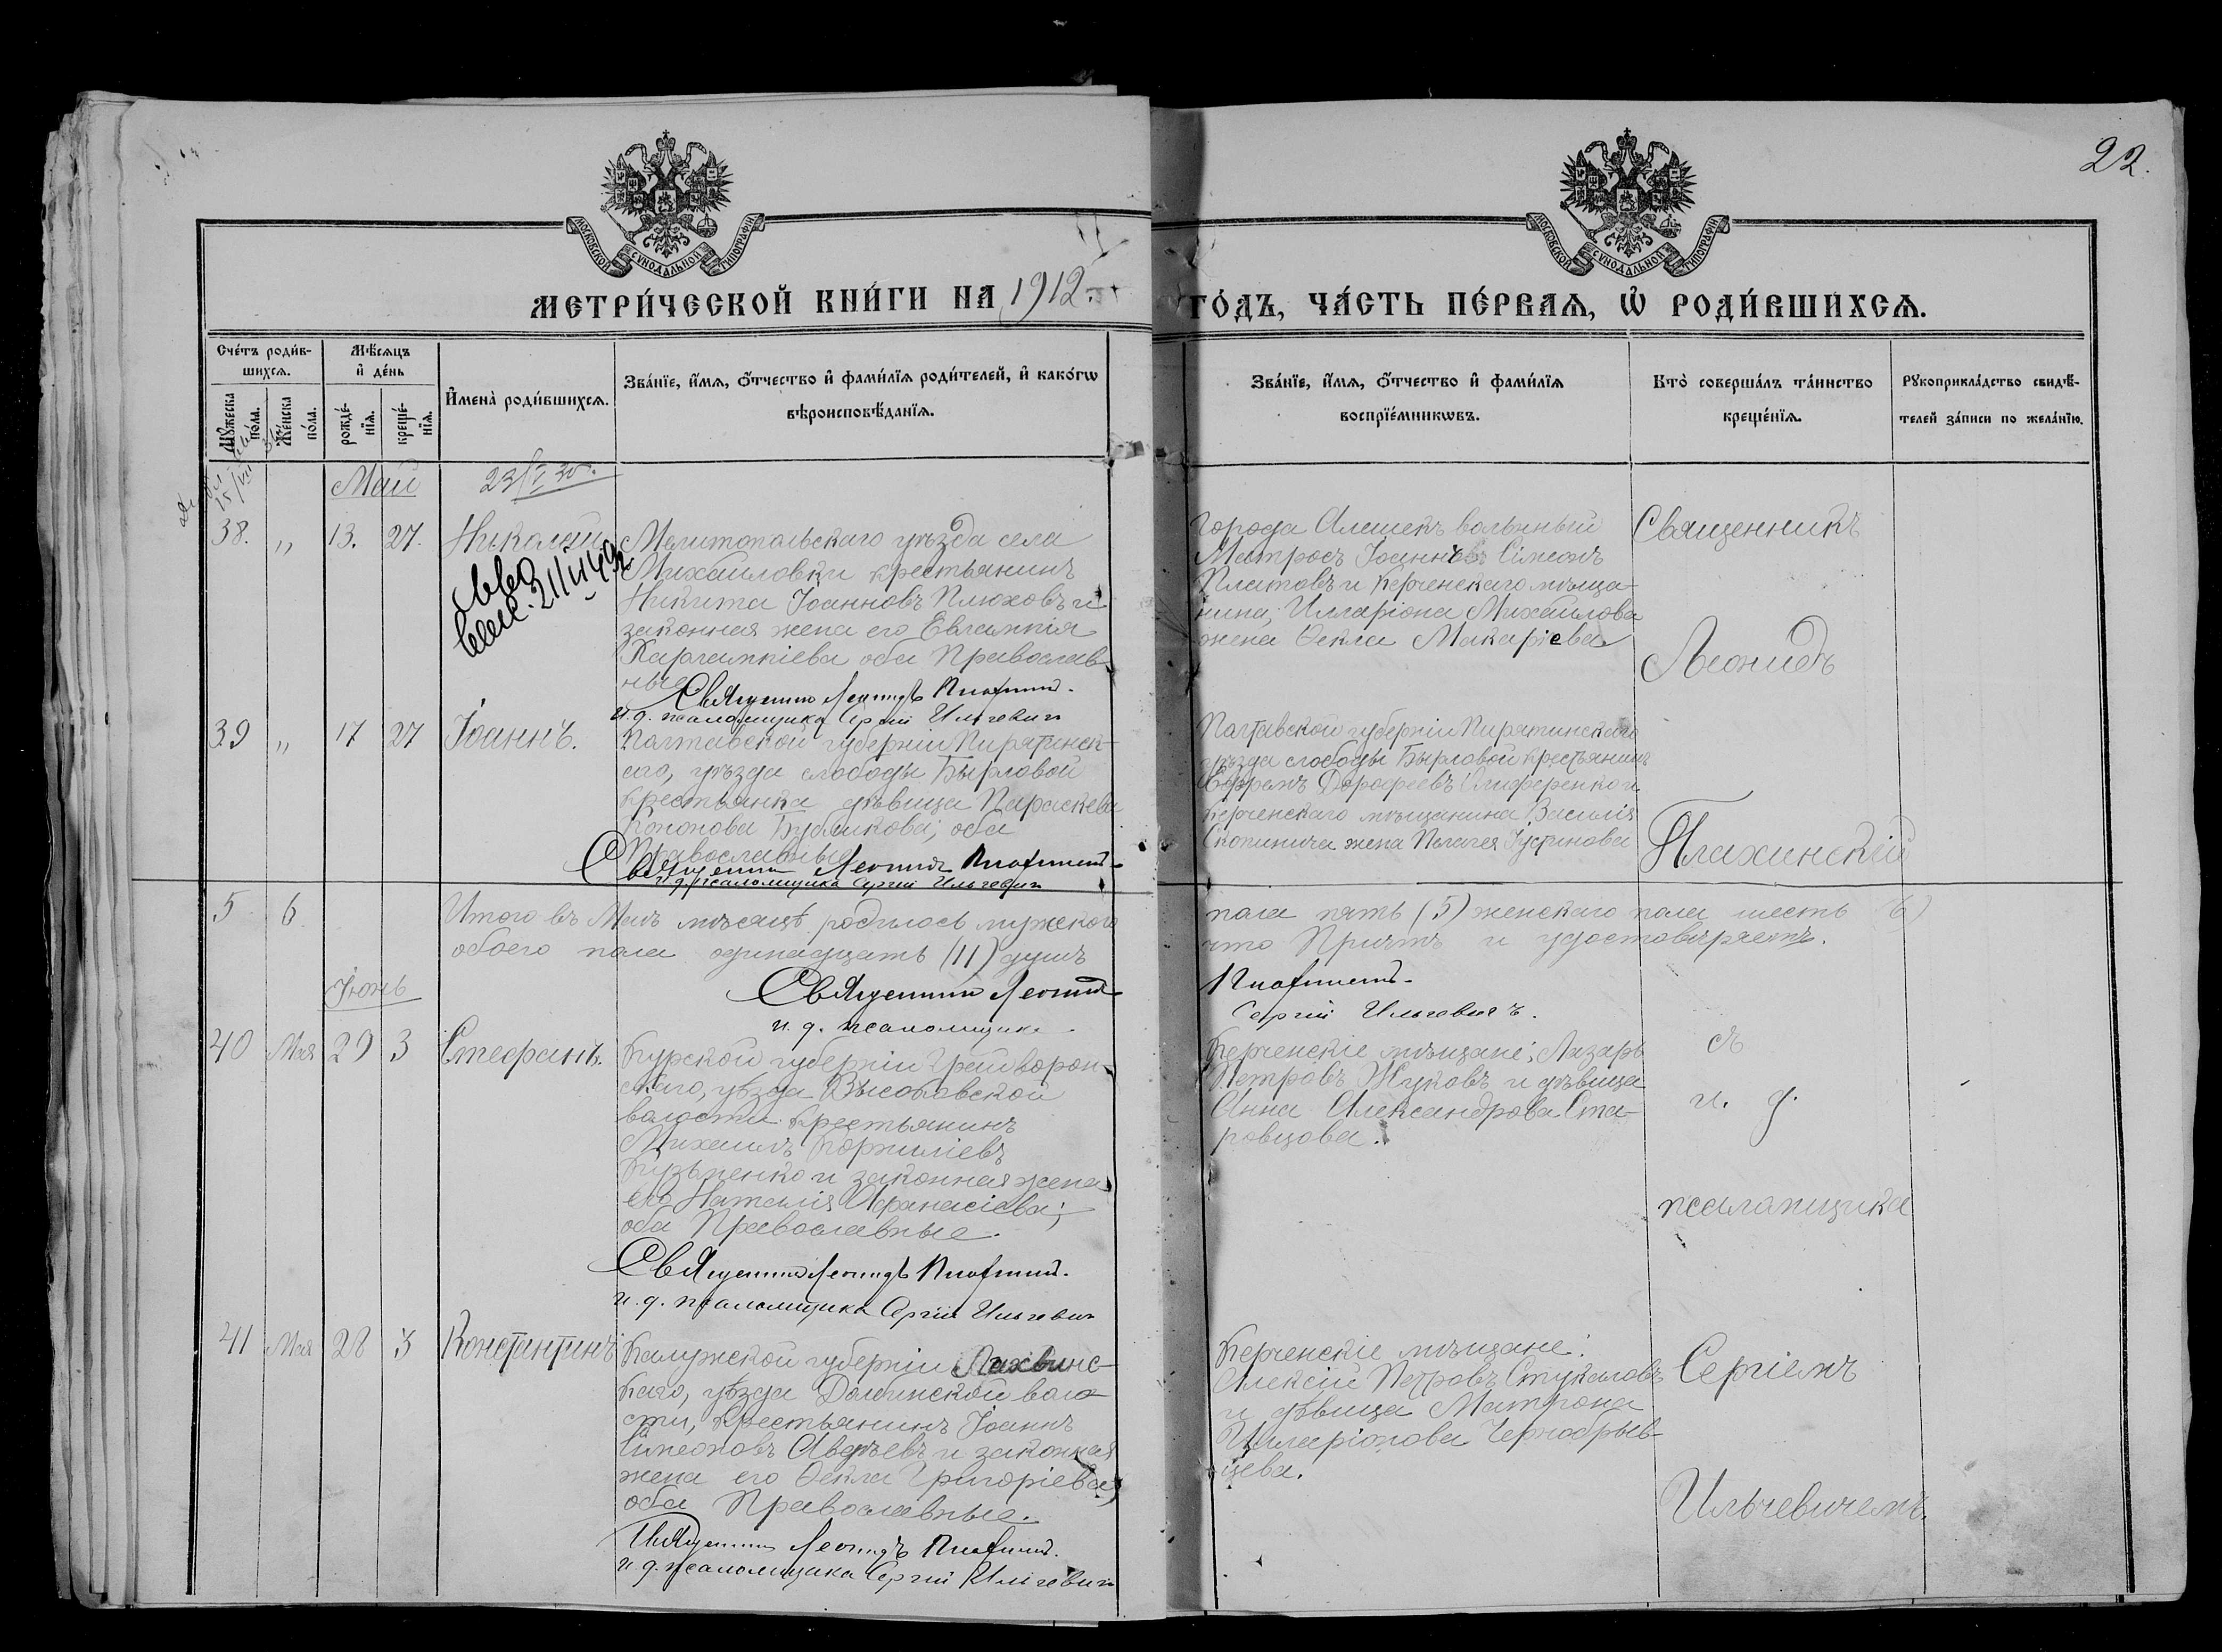 22.
МОСКОВСКОЙ СѴНОДАЛЬНОЙ ТИПОГРАФІИ
МОСКОВСКОЙ СѴНОДАЛЬНОЙ ТИПОГРАФІИ
МЕТРИ́ЧЕСКОЙ КНИ́ГИ НА 1912 ГО́ДЪ, ЧА́СТЬ ПЕ́РВАѦ, Ѽ РОДИ́ВШИХСѦ.
Сче́тъ роди́в-
шихсѧ.
Мѣ́сѧцъ
и҆ де́нь
Мꙋ́жеска
по́ла.
Же́нска
по́ла.
рожде́-
нїѧ.
креще́-
нїѧ.
И҆мена̀ роди́вшихсѧ.
Зва́нїе, и҆́мѧ, ѻ҆́тчество и҆ фами́лїѧ роди́телей, и҆ како́гѡ
вѣроисповѣ́данїѧ.
Зва́нїе, и҆́мѧ, ѻ҆́тчество и҆ фами́лїѧ
воспрїе́мникѡвъ.
Кто̀ соверша́лъ та́инство
креще́нїѧ.
Рꙋкоприкла́дство свидѣ́-
телей за́писи по жела́нїю.
Май
38. " 13. 27. Николай
Мелитопольскаго уѣзда села
Михайловки крестьянинъ
Никита Іоанновъ Плюховъ и
законная жена его Евлампія
Харлампіева оба Православ-
ные
Священникъ Леонидъ Плахинскій.
и. д. псаломщика Сергій Ильчевичъ
Города Алешекъ вольный
Матросъ Іоаннъ Симеонъ
Платовъ и Керченскаго мѣща-
нина, Илларіона Михайлова
жена Ѳекла Макаріева
Священникъ
Леонидъ
Плахинскій
39 " 17 27 Іоаннъ.
Полтавской губерніи Пирятинск-
аго, уѣзда слободы Бырловой
крестьянка дѣвица Параскева
Кононова Бубликова; оба
Православные
Священникъ Леонидъ Плахинскій
и. д. псаломщика Сергій Ильчевичъ
Полтавской губерніи Пирятинскаго
уѣзда слободы Бырловой крестьянинъ
Ефремъ Дорофеевъ Олиференко и
Керченскаго мѣщанина Василія
Скопинича жена Пелагея Іустинова
5 6
Итого въ Маѣ мѣсяцѣ родилось мужского пола пять (5) женскаго пола шесть (6)
обоего пола одинадцать (11) душъ что Причтъ и удостовѣряетъ.
Священникъ Леонидъ Плахинскій.
и. д. псаломщика Сергій Ильчевичъ.
Іюнь
40 Мая 29 3 Стефанъ.
Курской губерніи Грайворон-
скаго, уѣзда Высоковской
волости крестьянинъ
Михаилъ Корниліевъ
Кузьменко и законная жена
его Наталія Афанасіева;
оба Православные.
Священникъ Леонидъ Плахинскій.
и. д. псаломщика Сергій Ильчевичъ
Керченскіе мѣщане: Лазарь
Петровъ Жуковъ и дѣвица
Анна Александрова Ста-
ровцова.
съ
и. д.
псаломщика
Сергіемъ
Ильчевичемъ.
41 Мая 28 3 Константинъ
Калужской губерніи Лихвинс-
каго, уѣзда Долчинской воло-
сти, крестьянинъ Іоаннъ
Симеоновъ Авдѣевъ и законная
жена его Ѳекла Григоріева,
оба Православные.
Священникъ Леонидъ Плахинскій.
и. д. псаломщика Сергій Ильчевичъ
Керченскіе мѣщане:
Алексій Петровъ Стукаловъ
и дѣвица Матрона
Илларіонова Чернобрыв-
цева.